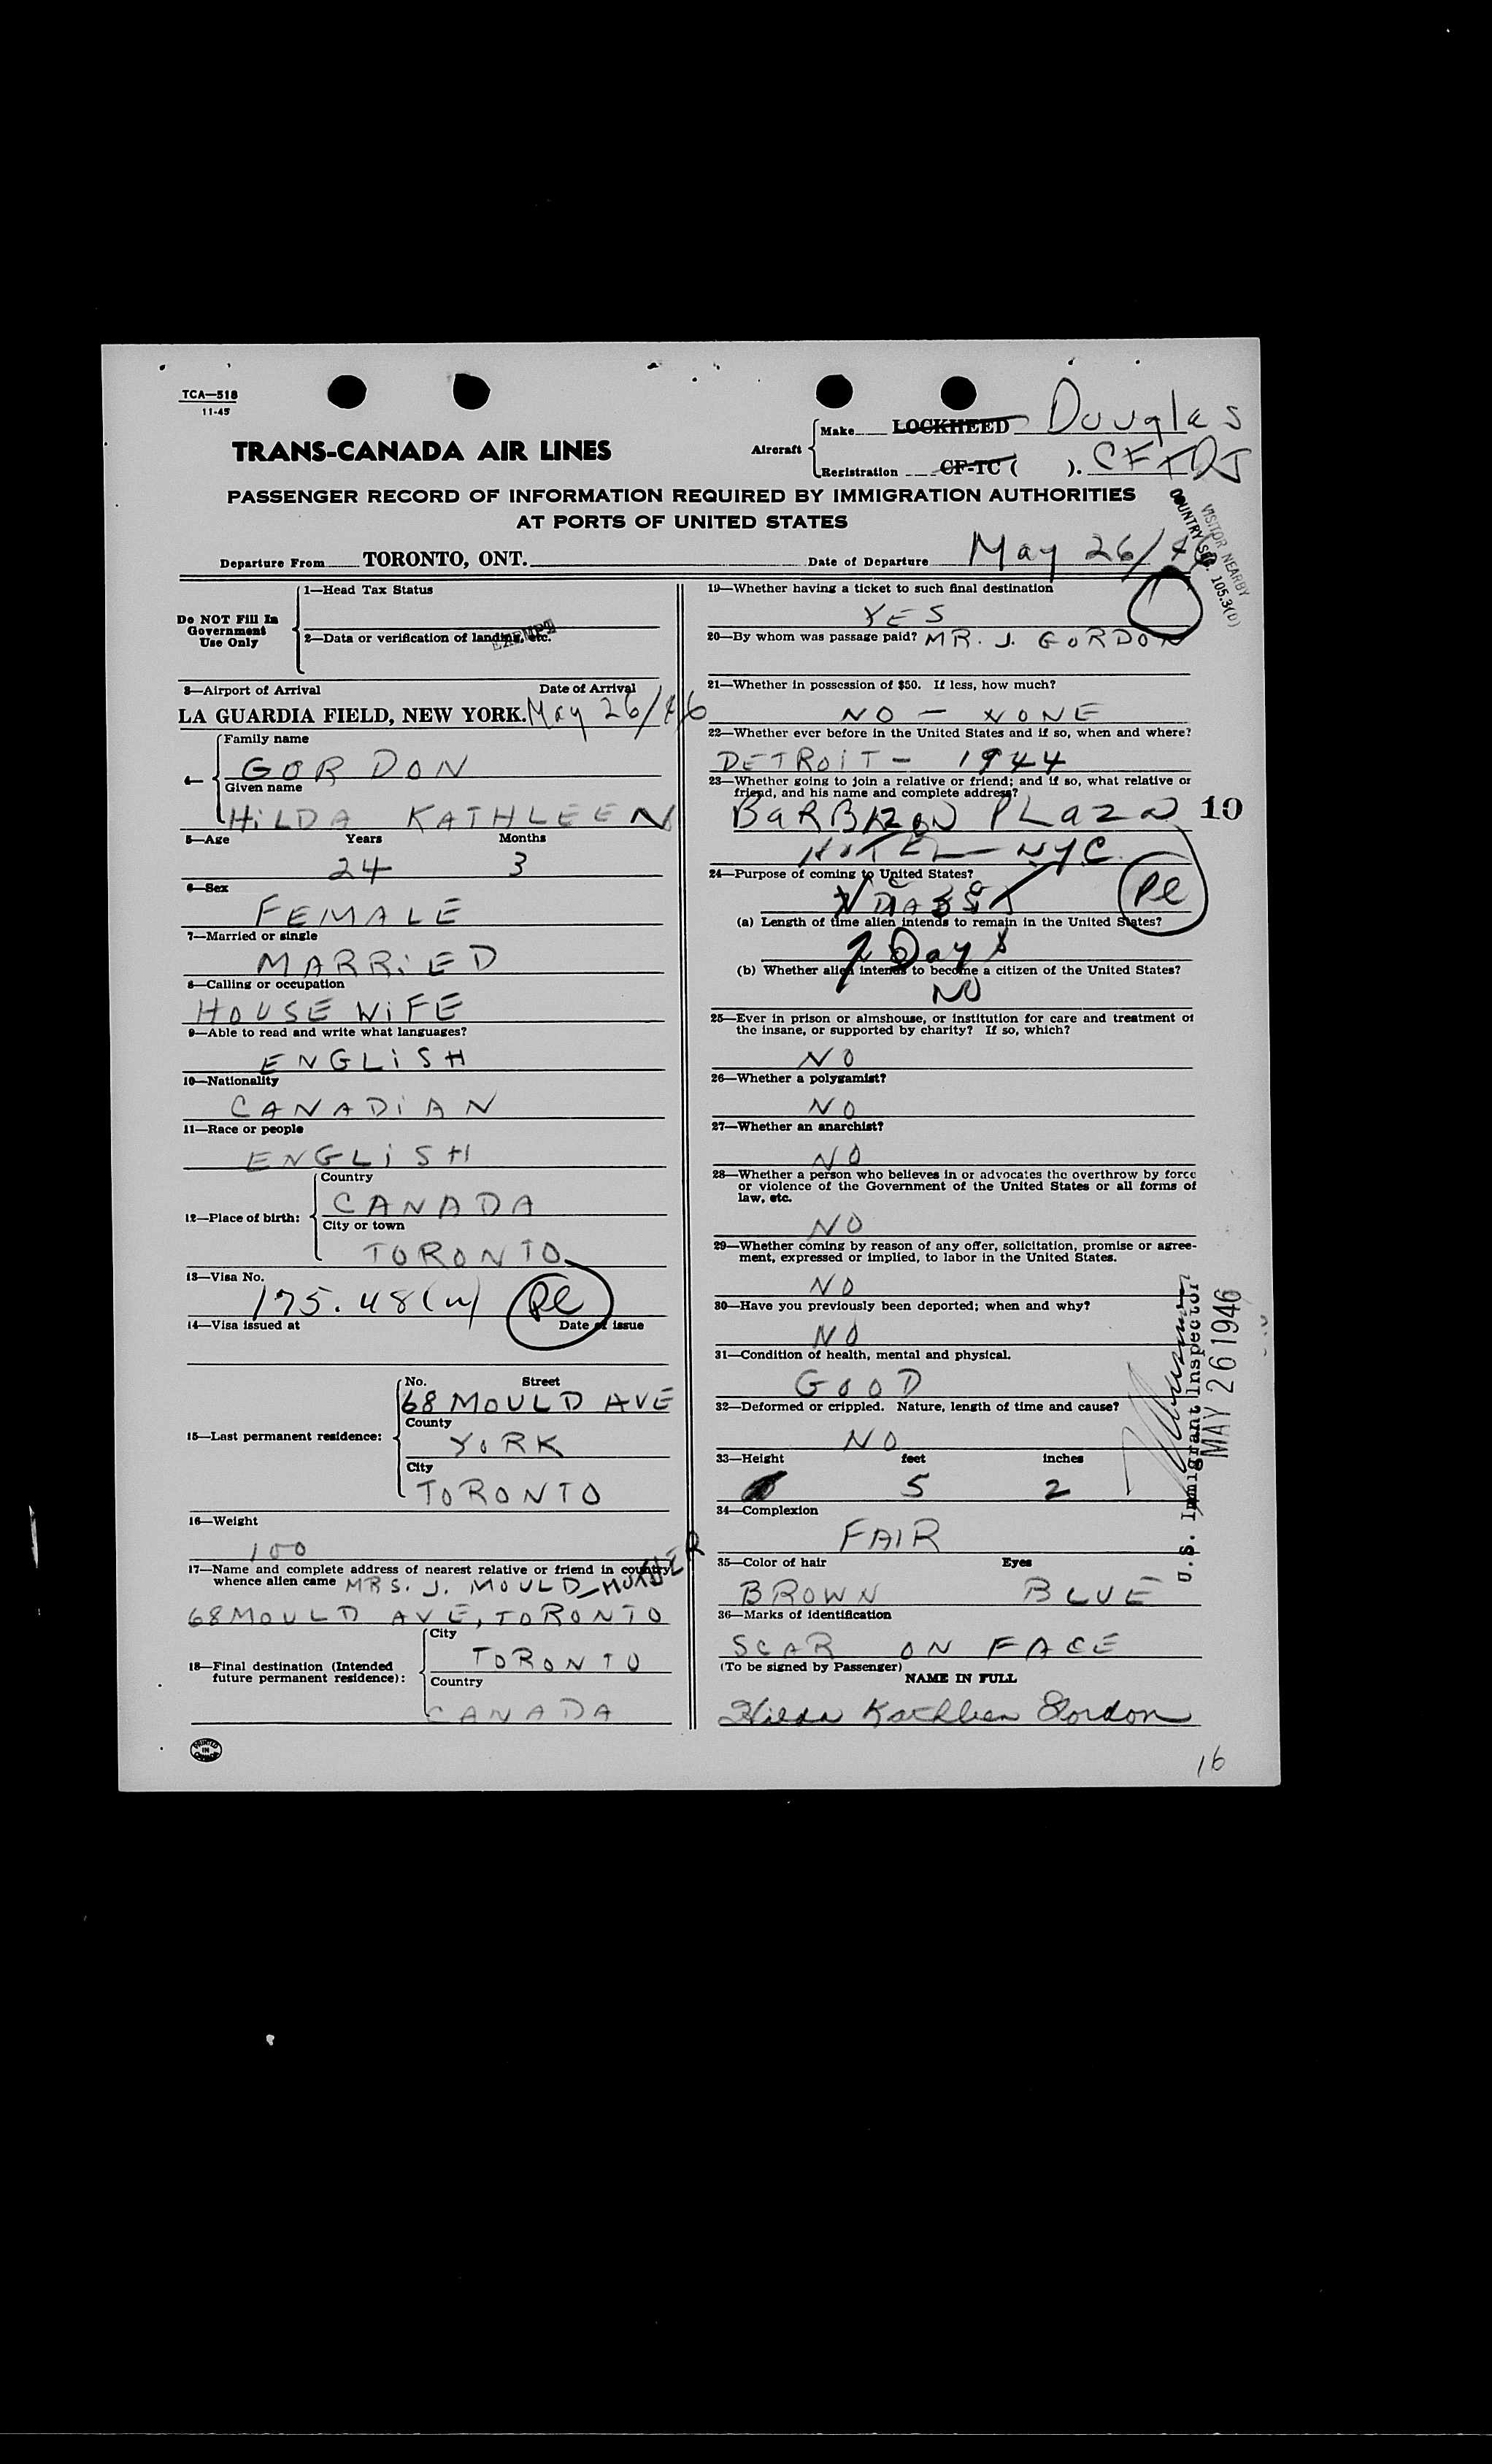 TCA—518
11-45
TRANS-CANADA AIR LINES
Aircraft
Make LOCKHEED Douglas
Registration CF-TC ( ).
PASSENGER RECORD OF INFORMATION REQUIRED BY IMMIGRATION AUTHORITIES
AT PORTS OF UNITED STATES
VISITOR NEARBY
COUNTRY SEC. 105.3(U)
Departure From TORONTO, ONT. Date of Departure May 26/46
Do NOT Fill In
Government
Use Only
1—Head Tax Status
2—Data or verification of landing, etc.
EXEMPT
3—Airport of Arrival Date of Arrival
LA GUARDIA FIELD, NEW YORK. May 26/46
4—
Family name
GORDON
Given name
HILDA KATHLEEN
5—Age Years Months
24 3
6—Sex
FEMALE
7—Married or single
MARRIED
8—Calling or occupation
HOUSE WIFE
9—Able to read and write what languages?
ENGLISH
10—Nationality
CANADIAN
11—Race or people
ENGLISH
12—Place of birth:
Country
CANADA
City or town
TORONTO
13—Visa No.
175.48(u)
14—Visa issued at Date of issue
15—Last permanent residence:
No. Street
68 MOULD AVE
County
YORK
City
TORONTO
16—Weight
100
17—Name and complete address of nearest relative or friend in country
whence alien came MRS. J. MOULD-MOTHER
68 MOULD AVE, TORONTO
18—Final destination (Intended
future permanent residence):
City
TORONTO
Country
CANADA
PRINTED
IN
CANADA
19—Whether having a ticket to such final destination
YES
20—By whom was passage paid? MR. J. GORDON
21—Whether in possession of $50. If less, how much?
NO — NONE
22—Whether ever before in the United States and if so, when and where?
DETROIT - 1944
23—Whether going to join a relative or friend; and if so, what relative or
friend, and his name and complete address?
BARBIZON PLAZA 10
HOTEL — NYC
24—Purpose of coming to United States?
(a) Length of time alien intends to remain in the United States?
Days
(b) Whether alien intends to become a citizen of the United States?
NO
25—Ever in prison or almshouse, or institution for care and treatment of
the insane, or supported by charity? If so, which?
NO
26—Whether a polygamist?
NO
27—Whether an anarchist?
NO
28—Whether a person who believes in or advocates the overthrow by force
or violence of the Government of the United States or all forms of
law, etc.
NO
29—Whether coming by reason of any offer, solicitation, promise or agree-
ment, expressed or implied, to labor in the United States.
NO
30—Have you previously been deported; when and why?
NO
31—Condition of health, mental and physical.
GOOD
32—Deformed or crippled. Nature, length of time and cause?
NO
33—Height feet inches
5 2
34—Complexion
FAIR
35—Color of hair Eyes
BROWN BLUE
36—Marks of identification
SCAR ON FACE
(To be signed by Passenger)
NAME IN FULL
Hilda Kathleen Gordon
U.S. Immigrant Inspector
MAY 26 1946
16